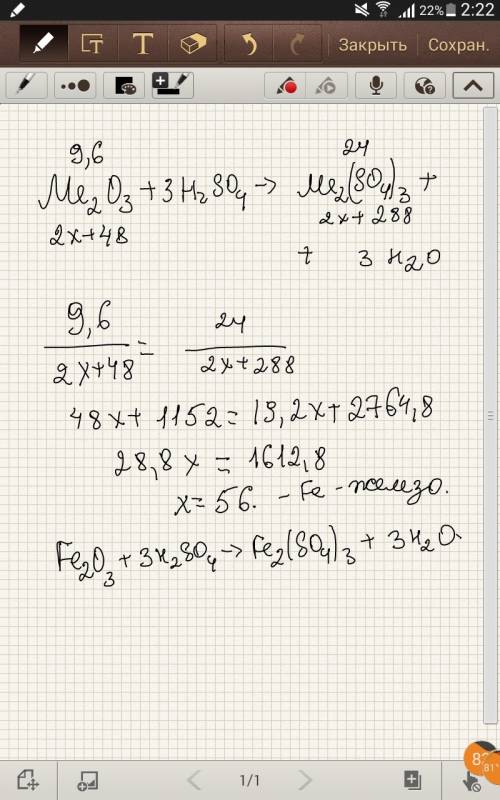 22% 2:22
Закрыть Сохран.
9,6 24
Me₂O₃ + 3H₂SO₄ → Me₂(SO₄)₃ +
2x+48 2x+288
+ 3 H₂O
9,6 / 2x+48 = 24 / 2x+288
48x + 1152 = 19,2x + 2764,8
28,8x = 1612,8
x = 56. - Fe - железо.
Fe₂O₃ + 3H₂SO₄ → Fe₂(SO₄)₃ + 3H₂O.
1/1
81°